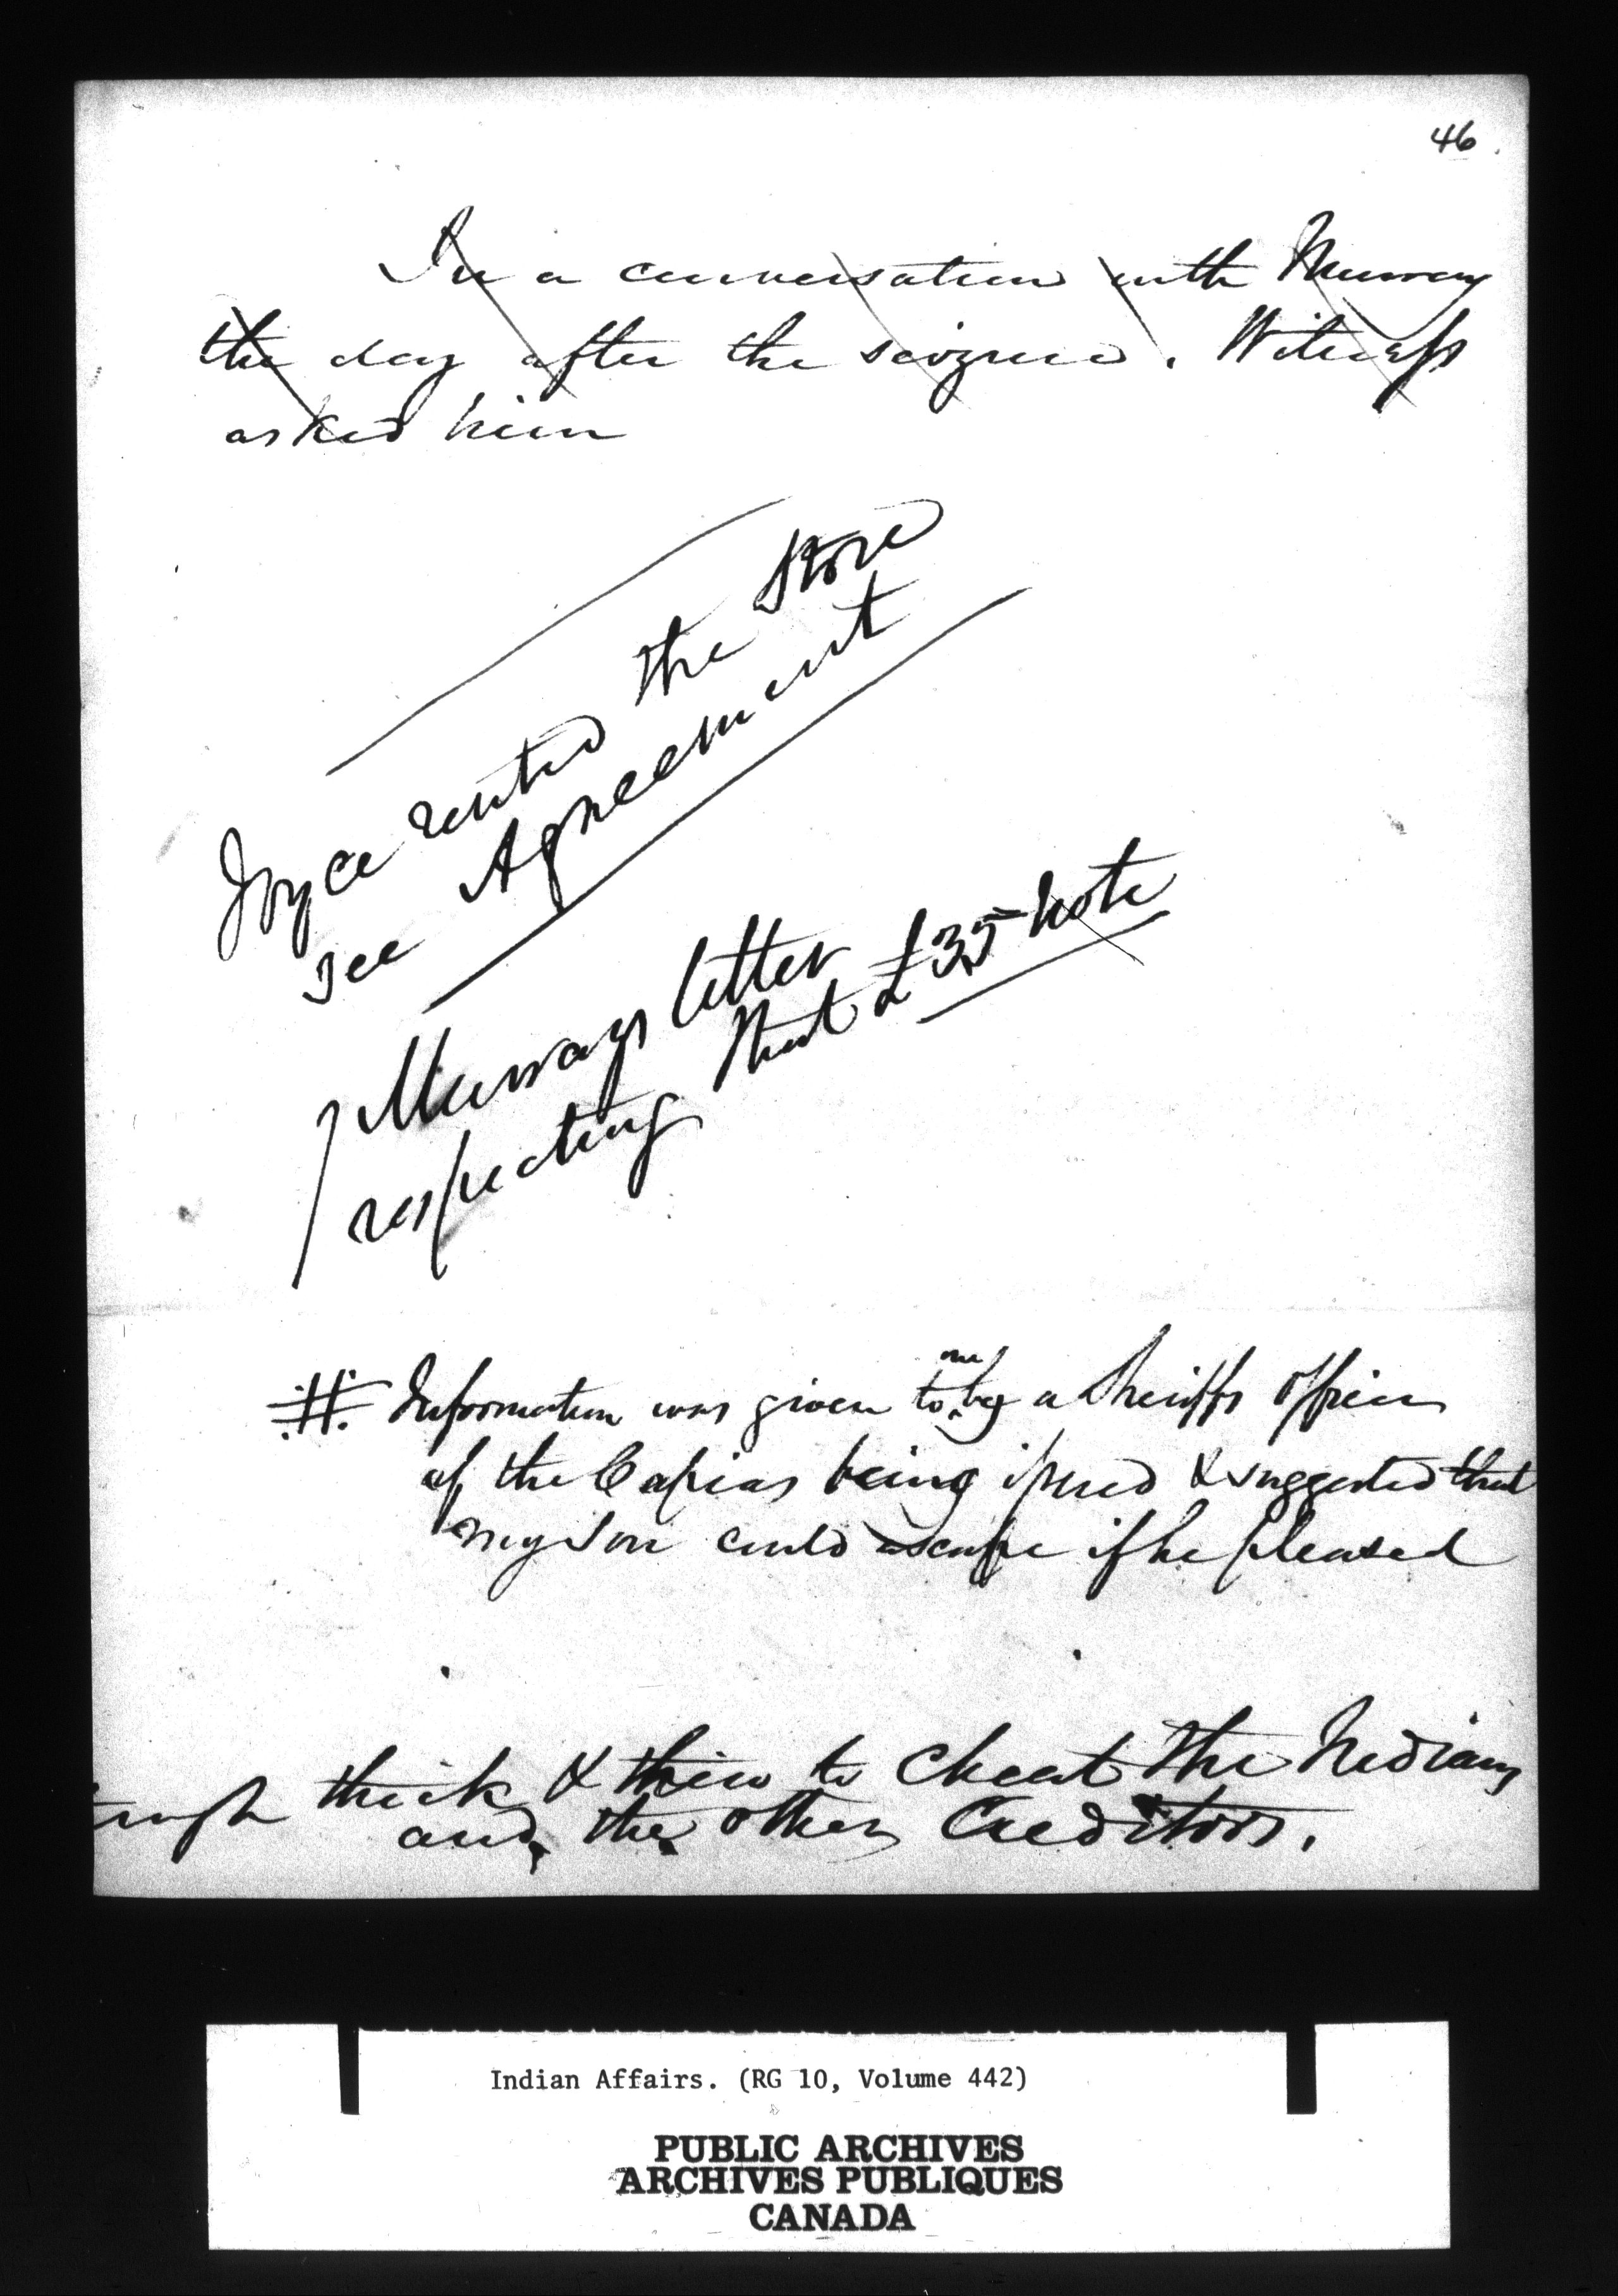 46
In a conversation with Murray
the day after the seizure. Witness
asked him
Joyce rented the Store
see Agreement
Murrays letter
respecting that £35 note
me
Information was given to by a Sheriffs Officer
of the Capias being issued & suggested that
my Son could escape if he pleased
thick & thin to cheat the Indians
and the other Creditors.
Indian Affairs. (RG 10, Volume 442)
PUBLIC ARCHIVES
ARCHIVES PUBLIQUES
CANADA